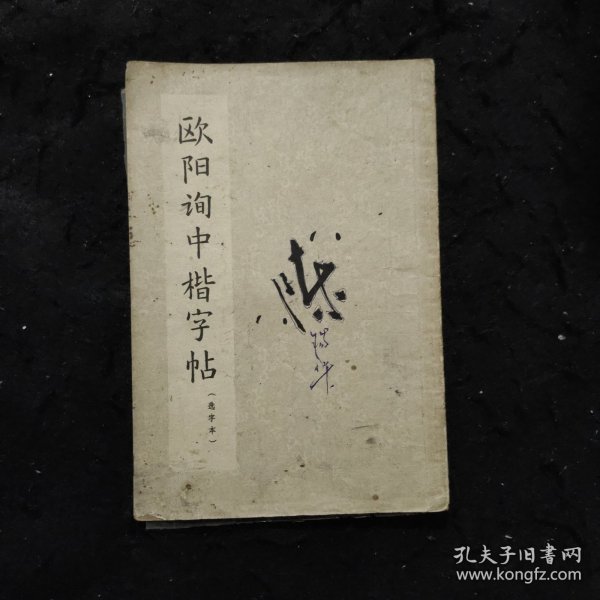 欧阳询中楷字帖
(选字本)
孔夫子旧书网
www.kongfz.com